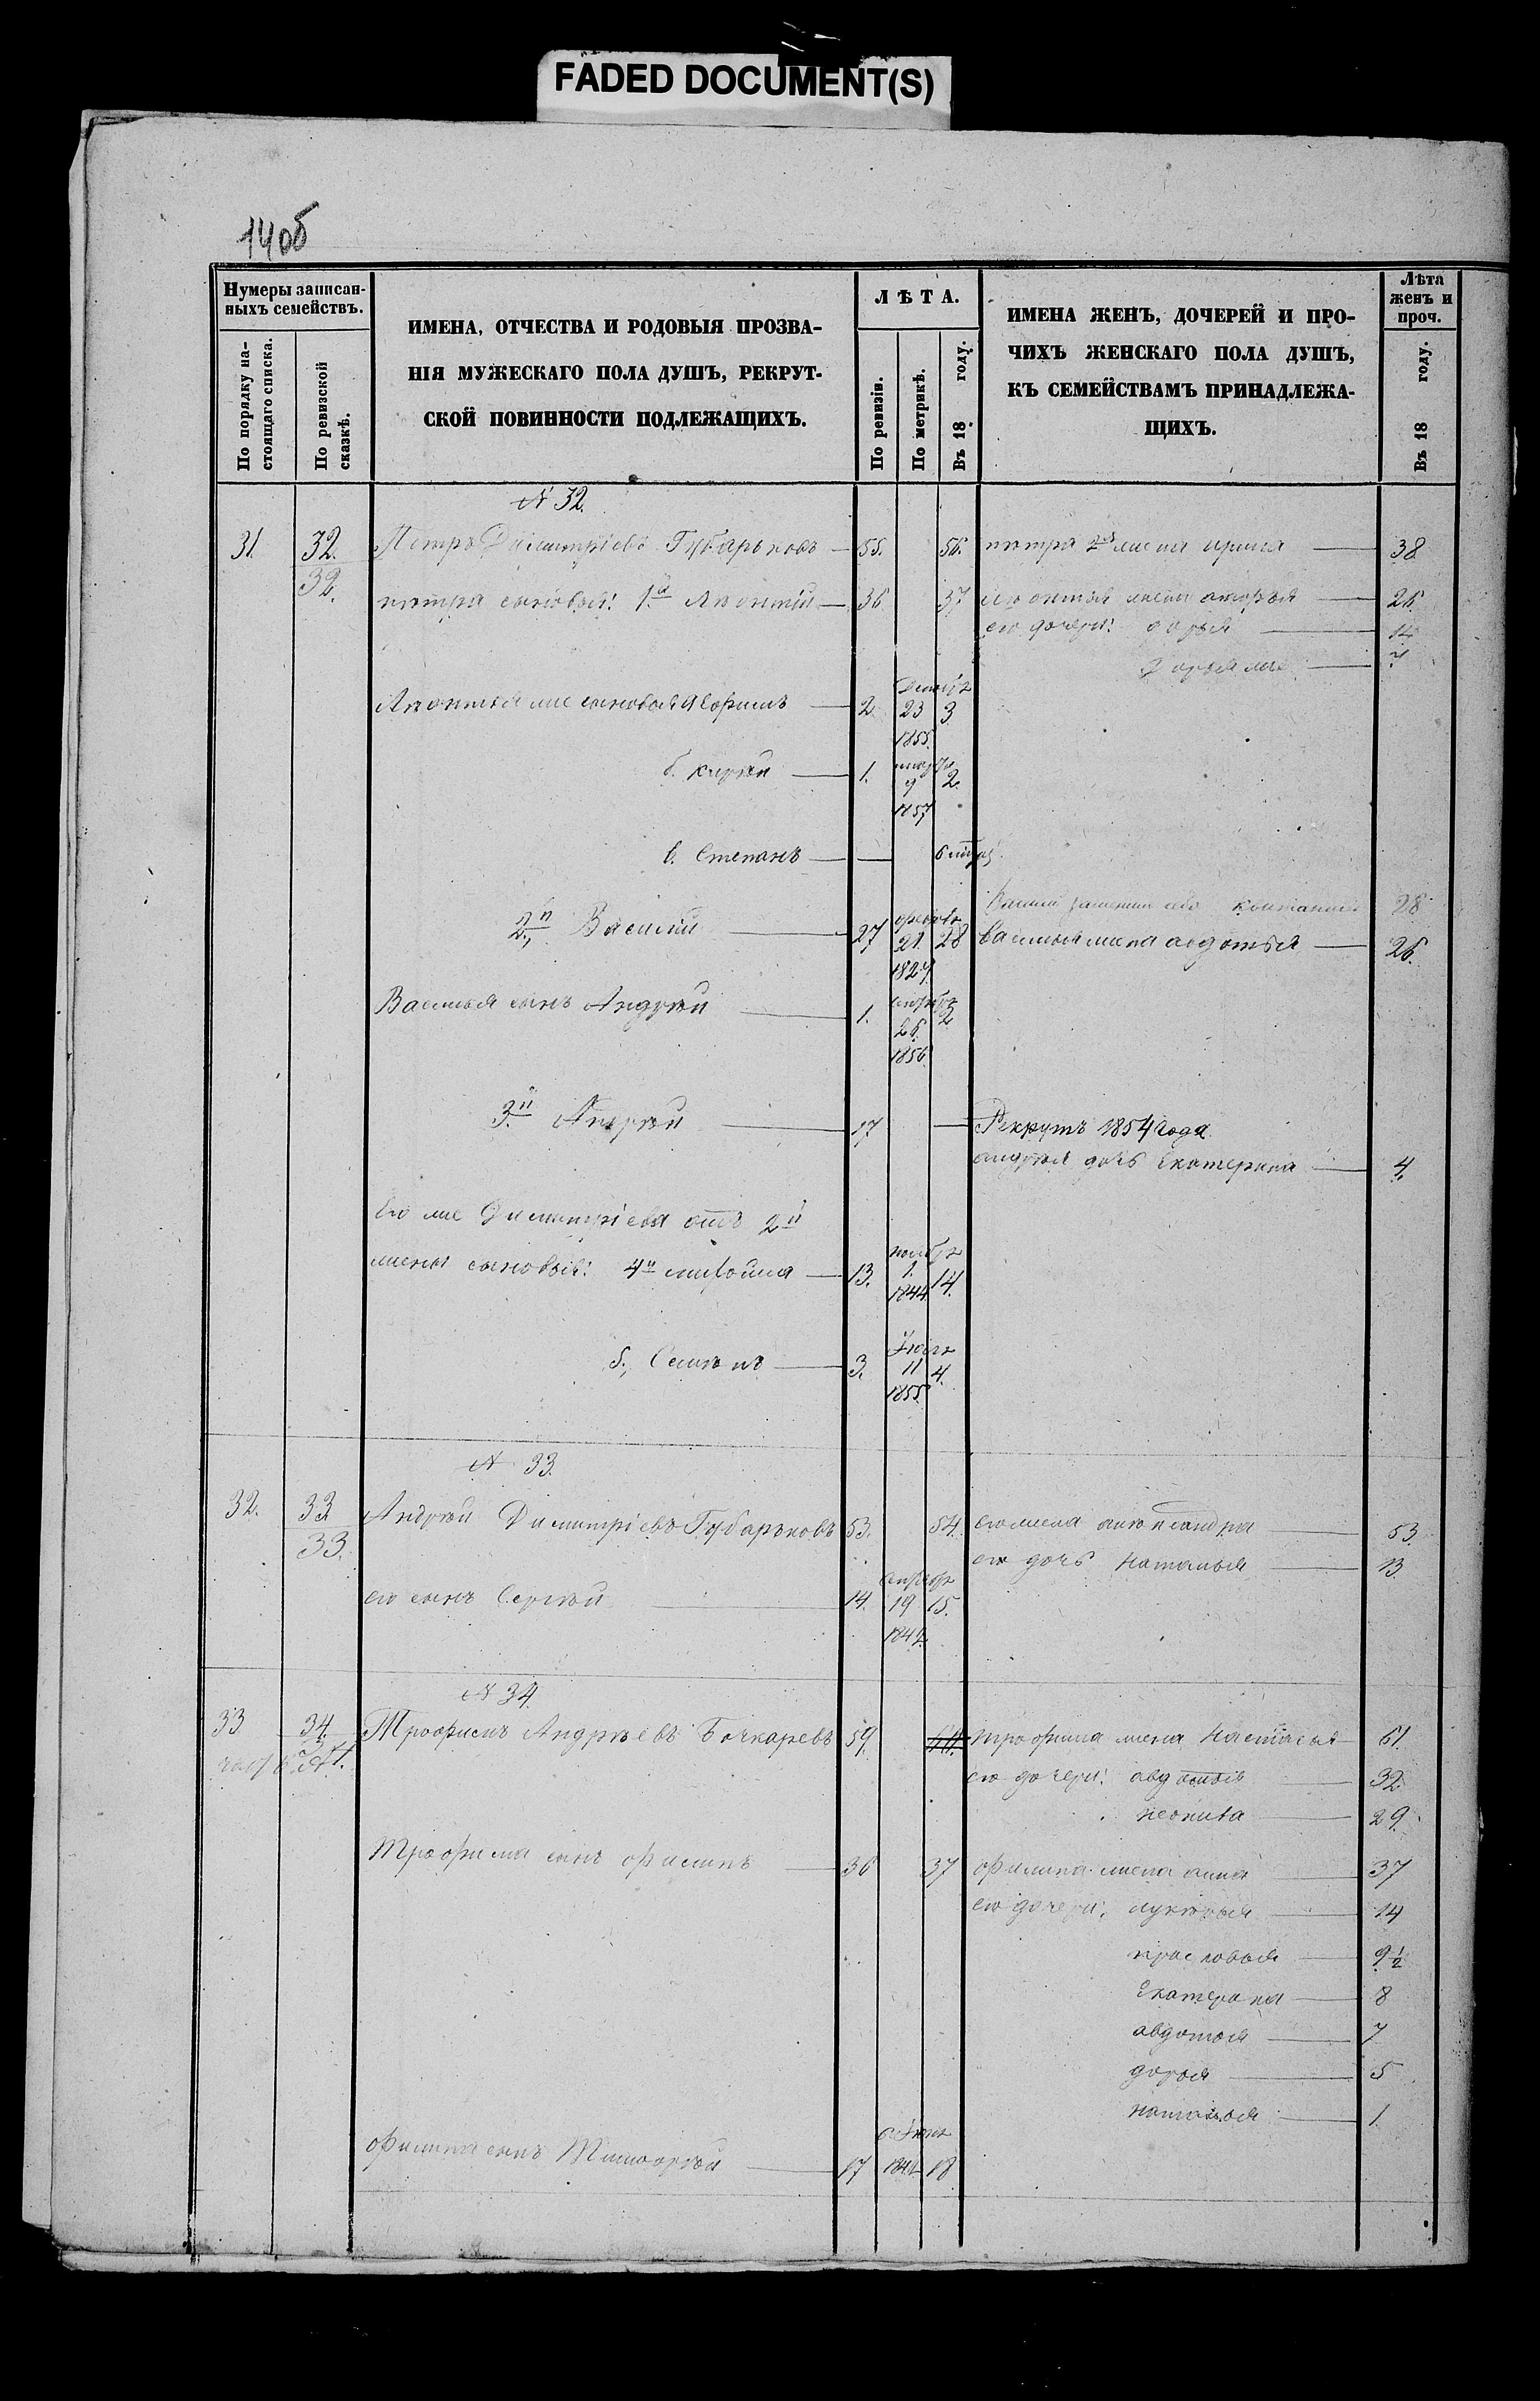 FADED DOCUMENT(S)
14об
Нумеры записан-
ныхъ семействъ.
По порядку на-
стоящаго списка.
По ревизской
сказкѣ.
ИМЕНА, ОТЧЕСТВА И РОДОВЫЯ ПРОЗВА-
НІЯ МУЖЕСКАГО ПОЛА ДУШЪ, РЕКРУТ-
СКОЙ ПОВИННОСТИ ПОДЛЕЖАЩИХЪ.
ЛѢТА.
По ревизіи.
По метрикѣ.
Въ 18 году.
ИМЕНА ЖЕНЪ, ДОЧЕРЕЙ И ПРО-
ЧИХЪ ЖЕНСКАГО ПОЛА ДУШЪ,
КЪ СЕМЕЙСТВАМЪ ПРИНАДЛЕЖА-
ЩИХЪ.
Лѣта
женъ и
проч.
Въ 18 году.
N 32.
31. 32. Петръ Димитріевъ Губарьковъ 55. 56. петра 2я жена ирина 38
32.
петра сыновья: 1й Леонтій 36 37 леонтья жена 26.
его дочери: 14
7
Леонтья же сыновья 2 23 3
1855.
б. кирѣй 1. марта 9 2
1857
в. Степанъ
2й Василий 27 21 28 васильяжена авдотья 26.
28
1827
Василья сынъ Андрѣй 1. 26 2
1856
3й Андрѣй 17 Рекрутъ 1854 года.
андрѣя дочь Екатерина 4.
его же Димитріева отъ 2й
жены сыновья: 4й 13. ноября 1. 14.
1844
5., Семенъ 3. 11 4.
1855
N 33.
32. 33 Андрѣй Димитріевъ Губарьковъ 53. 54. егожена александра 53.
33.
его дочь наталья 13
его сынъ Сергѣй 14. 19 15.
N 34.
33 34. Трофимъ Андрѣевъ Бочкаревъ 59. трофима жена настасья 61.
34.
его дочери: авдотья 32
неонила 29.
Трофима сынъ филипъ 36 37 филипа жена анна 37
его дочери: лукерья 14
9½
Екатерина 8
авдотья 7
дарья 5
наталья 1
филипа сынъ Тимофѣй 17 18